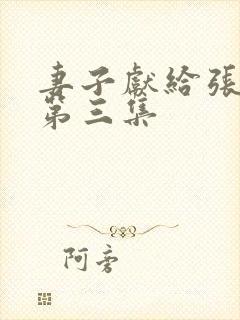 妻子獻給張
第三集
阿旁